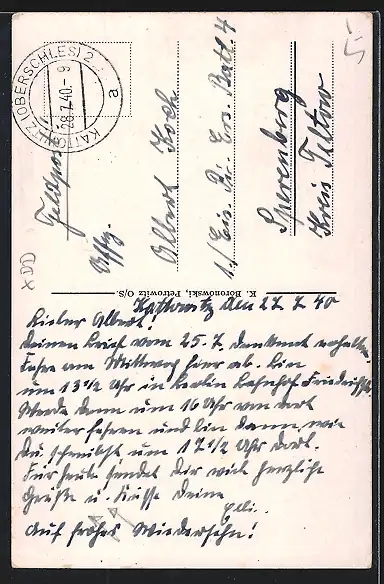 KATTOWITZ (OBERSCHLES) 2
28.7.40.-9
a
Feldpost
Albert Koch
1./Eis. Pi. Ers. Batl 4
Sperenberg
Kreis Teltow
K. Boronowski, Petrowitz O/S.
Kattowitz den 27. 7. 40
Lieber Albert!
Deinen Brief vom 25.7. dankend erhalten.
Fahre am Mittwoch hier ab. Bin
um 13 1/2 Uhr in Berlin Bahnhof Friedrichstr.
Werde dann um 16 Uhr von dort
weiter fahren und bin dann, wie
Du schreibst um 17 1/2 Uhr dort.
Für heute sendet Dir viele herzliche
Grüße u. Küsse Deine
Elli.
Auf frohes Wiedersehn!